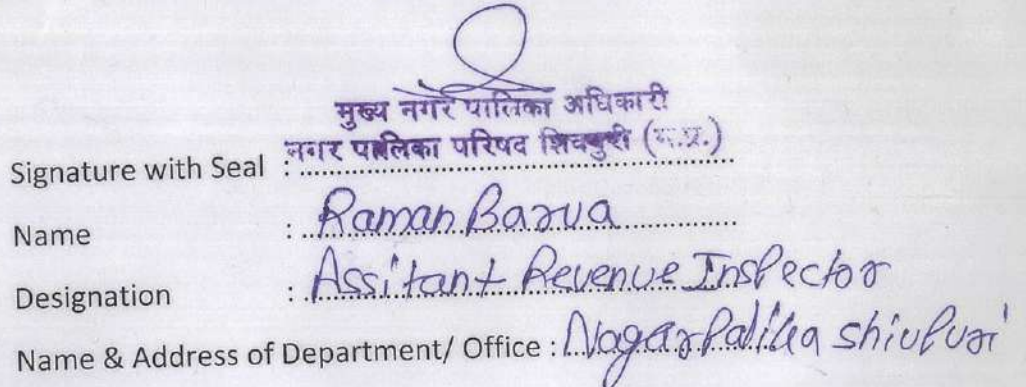 मुख्य नगर पालिका अधिकारी
नगर पालिका परिषद शिवपुरी (म.प्र.)
Signature with Seal :
Name : Raman Barua
Designation : Assitant Revenue Inspector
Name & Address of Department/ Office : Nagar Palika Shivpuri